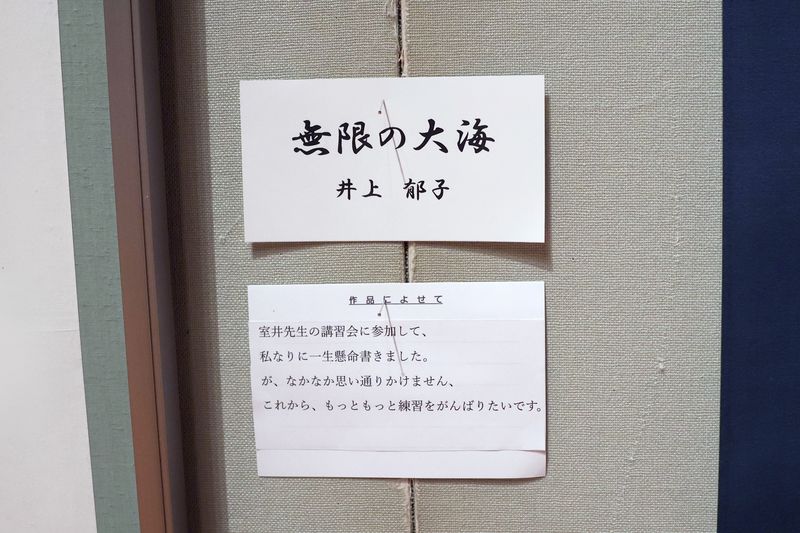 無限の大海
井上 郁子
作品によせて
室井先生の講習会に参加して、
私なりに一生懸命書きました。
が、なかなか思い通りかけません、
これから、もっともっと練習をがんばりたいです。